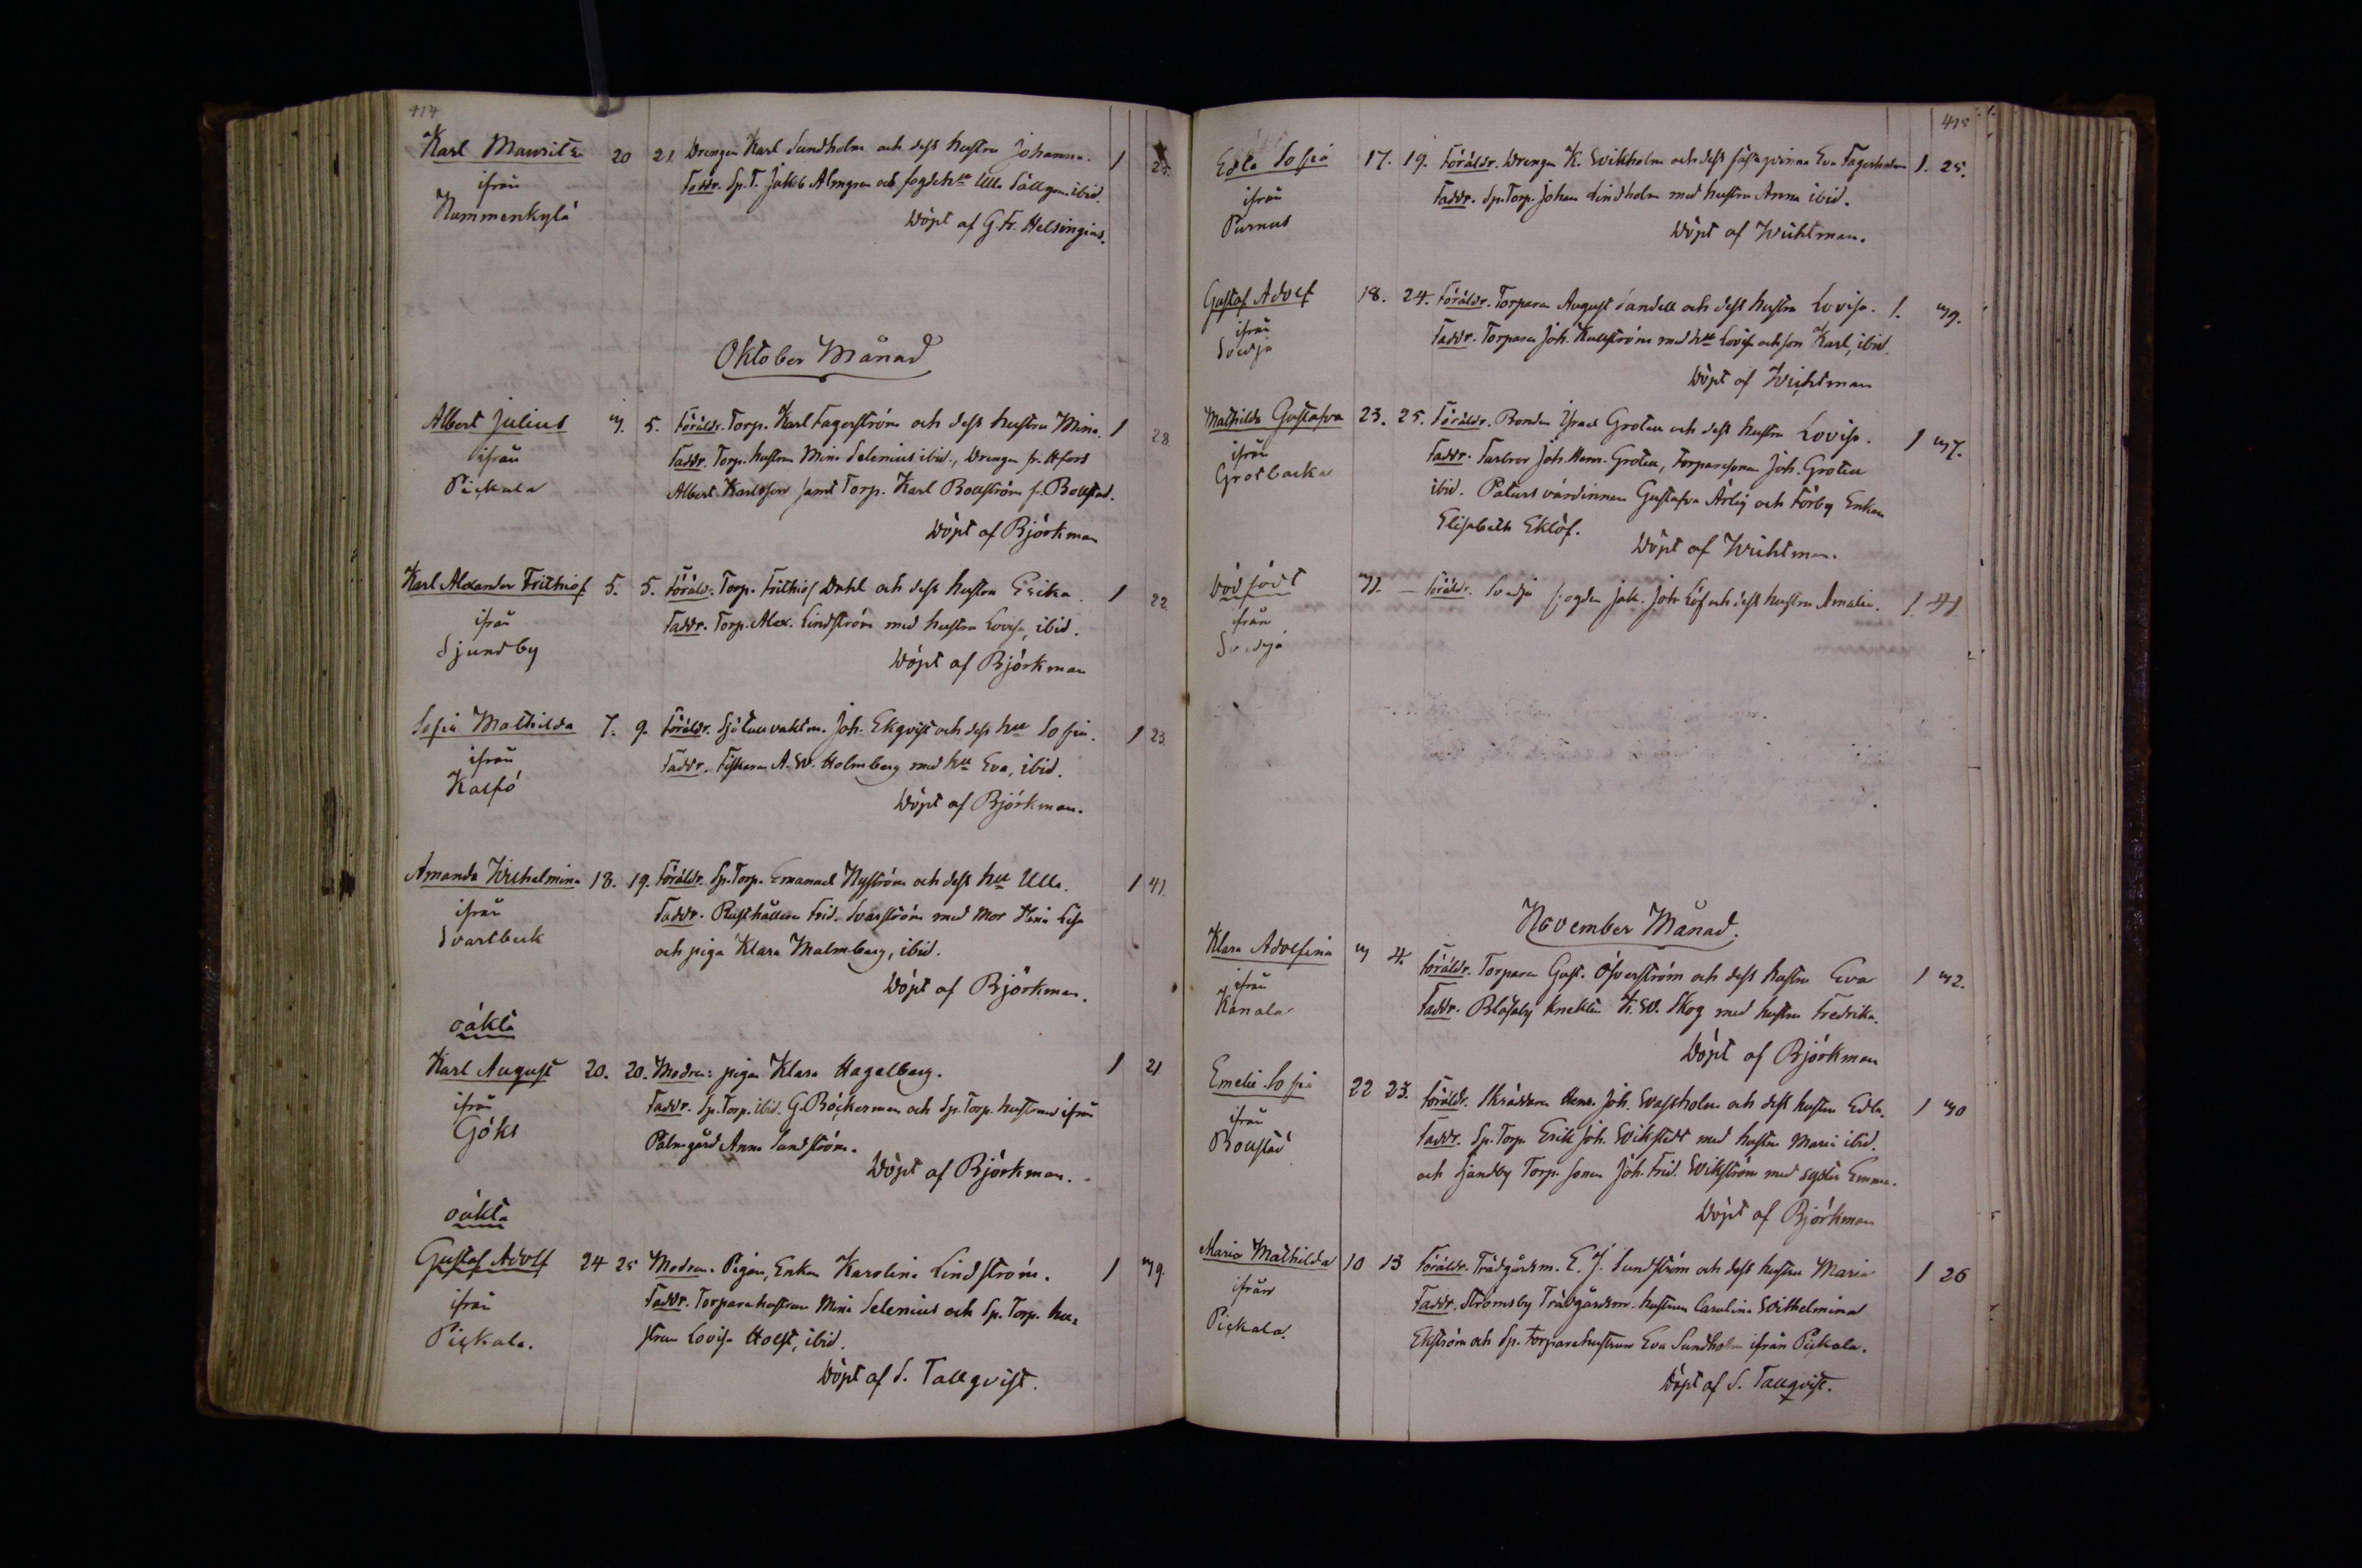 414
Karl Maurits 20 21 Drengen Karl Sundholm och dess hustru Johanna. 1 25.
ifrån Faddr. Sp. T. Jakob Almgren och fogdeh:u Ulla Sällgren ibid.
Nummenkylä
Döpt af G. Fr. Helsingius.
Oktober Månad
Albert Julius 3. 5. Föräldr. Torp. Karl Fagerström och dess hustru Mina. 1 28.
ifrån Faddr. Torp. hustrun Mina Selenius ibid., Drengen fr.
Pickala Albert Karlsson samt Torp. Karl Bollström fr. Bollstad.
Döpt af Björkman
Karl Alexander Frithiof 5. 5. Föräldr. Torp. Frithiof Dahl och dess hustru Erika. 1 22.
ifrån Faddr. Torp. Alex. Lindström med hustru Lovisa, ibid.
Sjundby
Döpt af Björkman
Sofia Mathilda 7. 9. Föräldr. Sjötullvaktm. Joh. Ekqvist och dess hu Sofia. 1 23.
ifrån Faddr. Fiskaren A. W. Holmberg med hu Eva, ibid.
Kalfö
Döpt af Björkman.
Amanda Wilhelmina 18. 19. Föräldr. Sp. Torp. Emanuel Nyström och dess hu Ulla. 1 41.
ifrån Faddr. Rusthållaren Frid. Svarström med Mor Stina Lisa
Svartbeck och piga Klara Malmberg, ibid.
Döpt af Björkman.
oäkta
Karl August 20. 20. Modren: pigan Klara Hagelberg. 1 21
ifrån Faddr. Sp. Torp. ibid. G. Böckerman och Sp. Torp. hustrun ifrån
Göks Palmgård Anna Sundström.
Döpt af Björkman.
oäkta
Gustaf Adolf 24 25 Modren. Pigan, Enkan Karolina Lindström. 1 39.
ifrån Faddr. Torparehustrun Mina Selenius och Sp. Torp. hu-
Pickala. strun Lovisa Holst, ibid.
Döpt af S. Tallqvist.
415
Edla Sofia 17. 19. Föräldr. Drengen K. Wikholm och dess fästeqvinna Eva Fagerholm 1. 25.
ifrån Faddr. Sp. Torp. Johan Lindholm med hustru Anna ibid.
Purnus
Döpt af Wichtman.
Gustaf Adolf 18. 24. Föräldr. Torparen August Sandell och dess hustru Lovisa. 1. 39.
ifrån Faddr. Torparen Joh. Kullström med hu Lovisa och son Karl, ibid.
Svidja
Döpt af Wichtman
Mathilda Gustafva 23. 25. Föräldr. Bonden Israel Grotell och dess hustru Lovisa. 1 37.
ifrån Faddr. Farbror Joh. Henr. Grotell, Torparesonen Joh. Grotell
Grotbacka ibid. Paturs värdinnan Gustafva Ärlig och Förby Enkan
Elisabeth Eklöf.
Döpt af Wichtman.
Dödfödt 31. — Föräldr. Svidja fogden Jak. Joh. Löf och dess hustru Amalia. 1. 41.
ifrån
Svidja
November Månad.
Klara Adolfina 3 4. Föräldr. Torparen Gust. Öfverström och dess hustru Eva 1 32.
ifrån Faddr. Blåsaby knekten K. W. Skog med hustru Fredrika.
Kanala
Döpt af Björkman
Emelie Sofia 22 23. Föräldr. Skräddaren Henr. Joh. Wassholm och dess hustru Edla. 1 30
ifrån Faddr. Sp. Torp. Erik Joh. Wikstedt med hustru Maria ibid.
Bollstad och Sjundby Torp. sonen Joh. Frid. Wikström med syster Emma.
Döpt af Björkman
Maria Mathilda 10 13 Föräldr. Trädgårdsm. E. J. Sundström och dess hustru Maria 1 26
ifrån Faddr. Strömsby Trädgårdsm. hustrun Carolina Wilhelmina
Pickala. Ekström och Sp. Torparehustrun Eva Sundholm ifrån Pickala.
Döpt af S. Tallqvist.